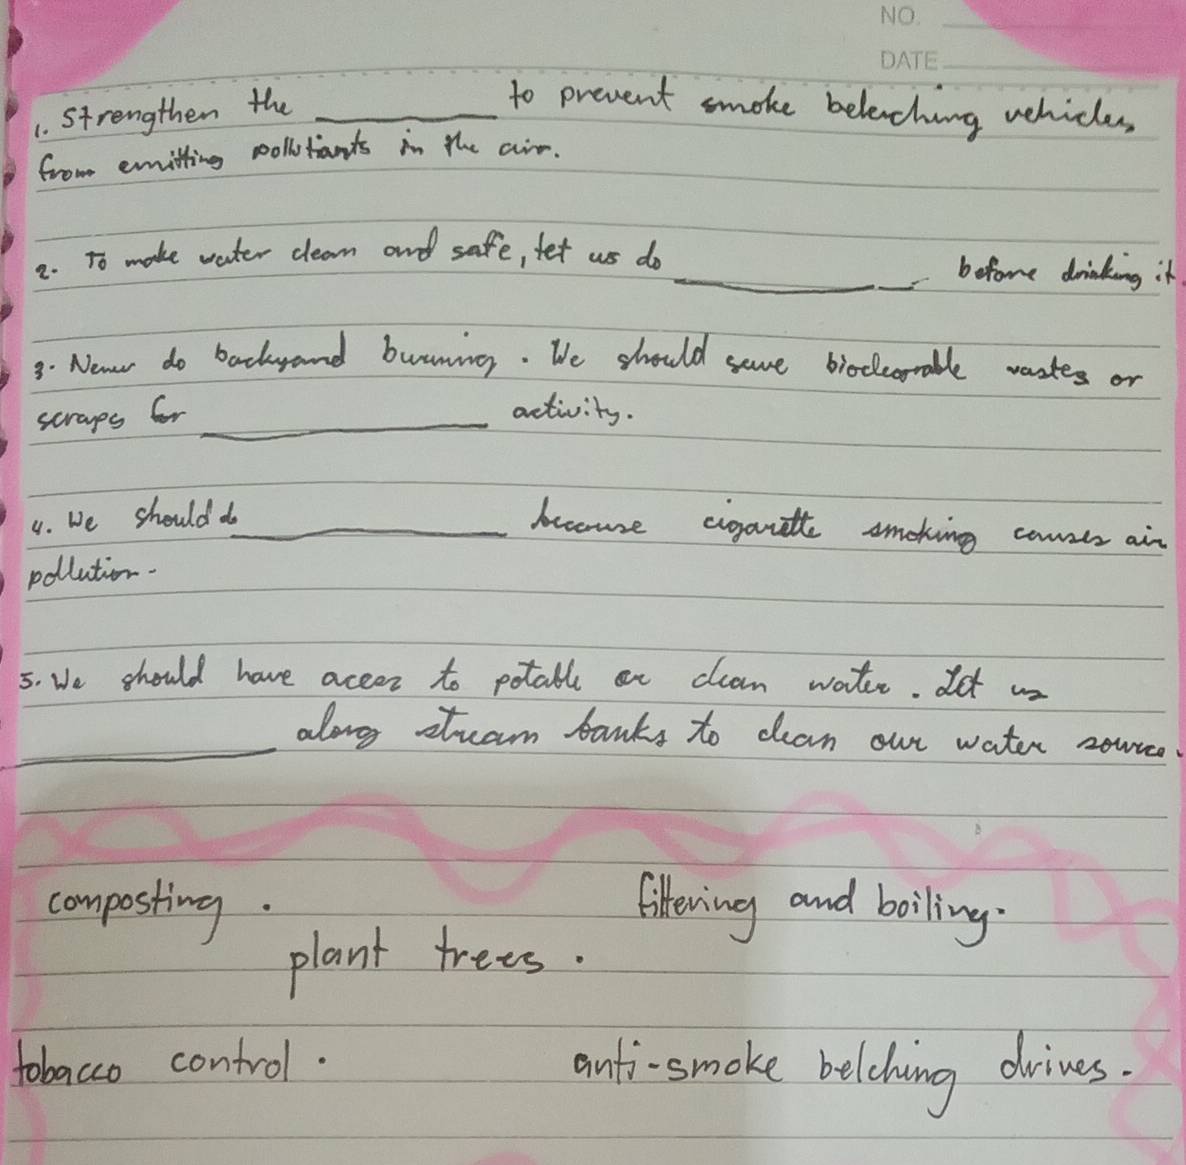 NO.
DATE
1. Strengthen the ________ to prevent smoke belerching vehicles
from emitting pollutiants in the air.
2. To make water clean and safe, let us do ________ before drinking it.
3. Never do backyard burning. We should save biodearable wastes or
scraps for ________ activity.
4. We should do ________ because cigarette smoking causes air
pollution.
5. We should have acees to potable or clean water. Let us
________ along stream banks to clean our water source.
composting. filtering and boiling.
plant trees.
tobacco control. anti-smoke belching drives.